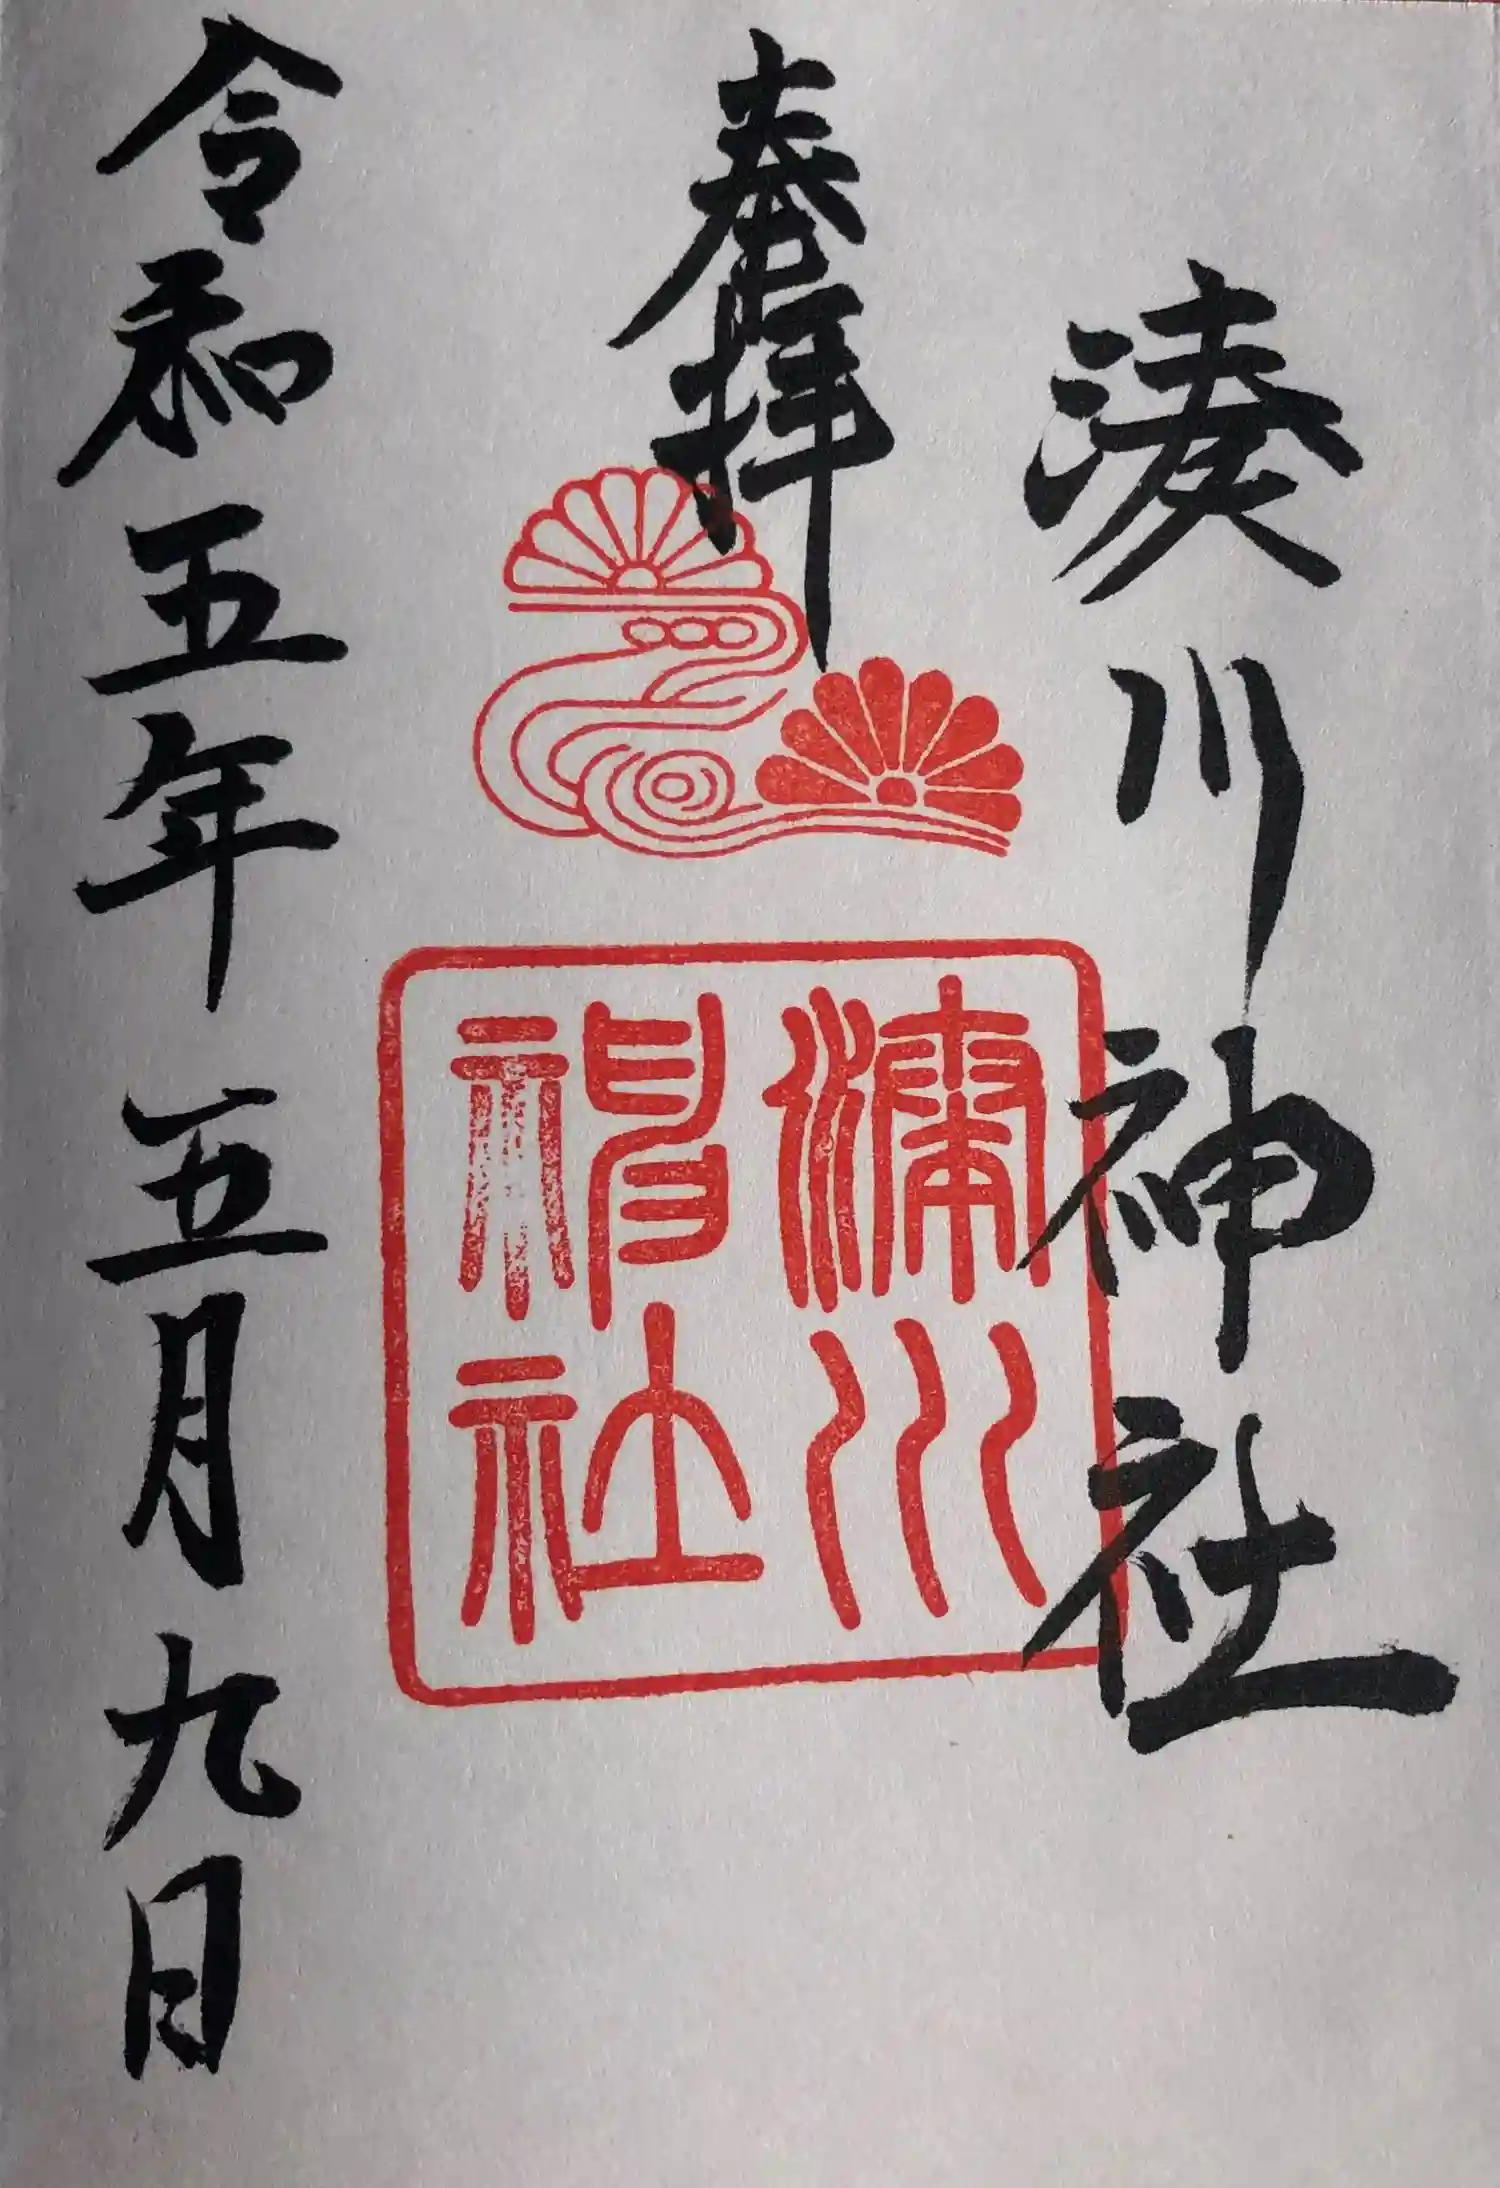 湊川神社
奉拝
湊川
神社
令和五年五月九日